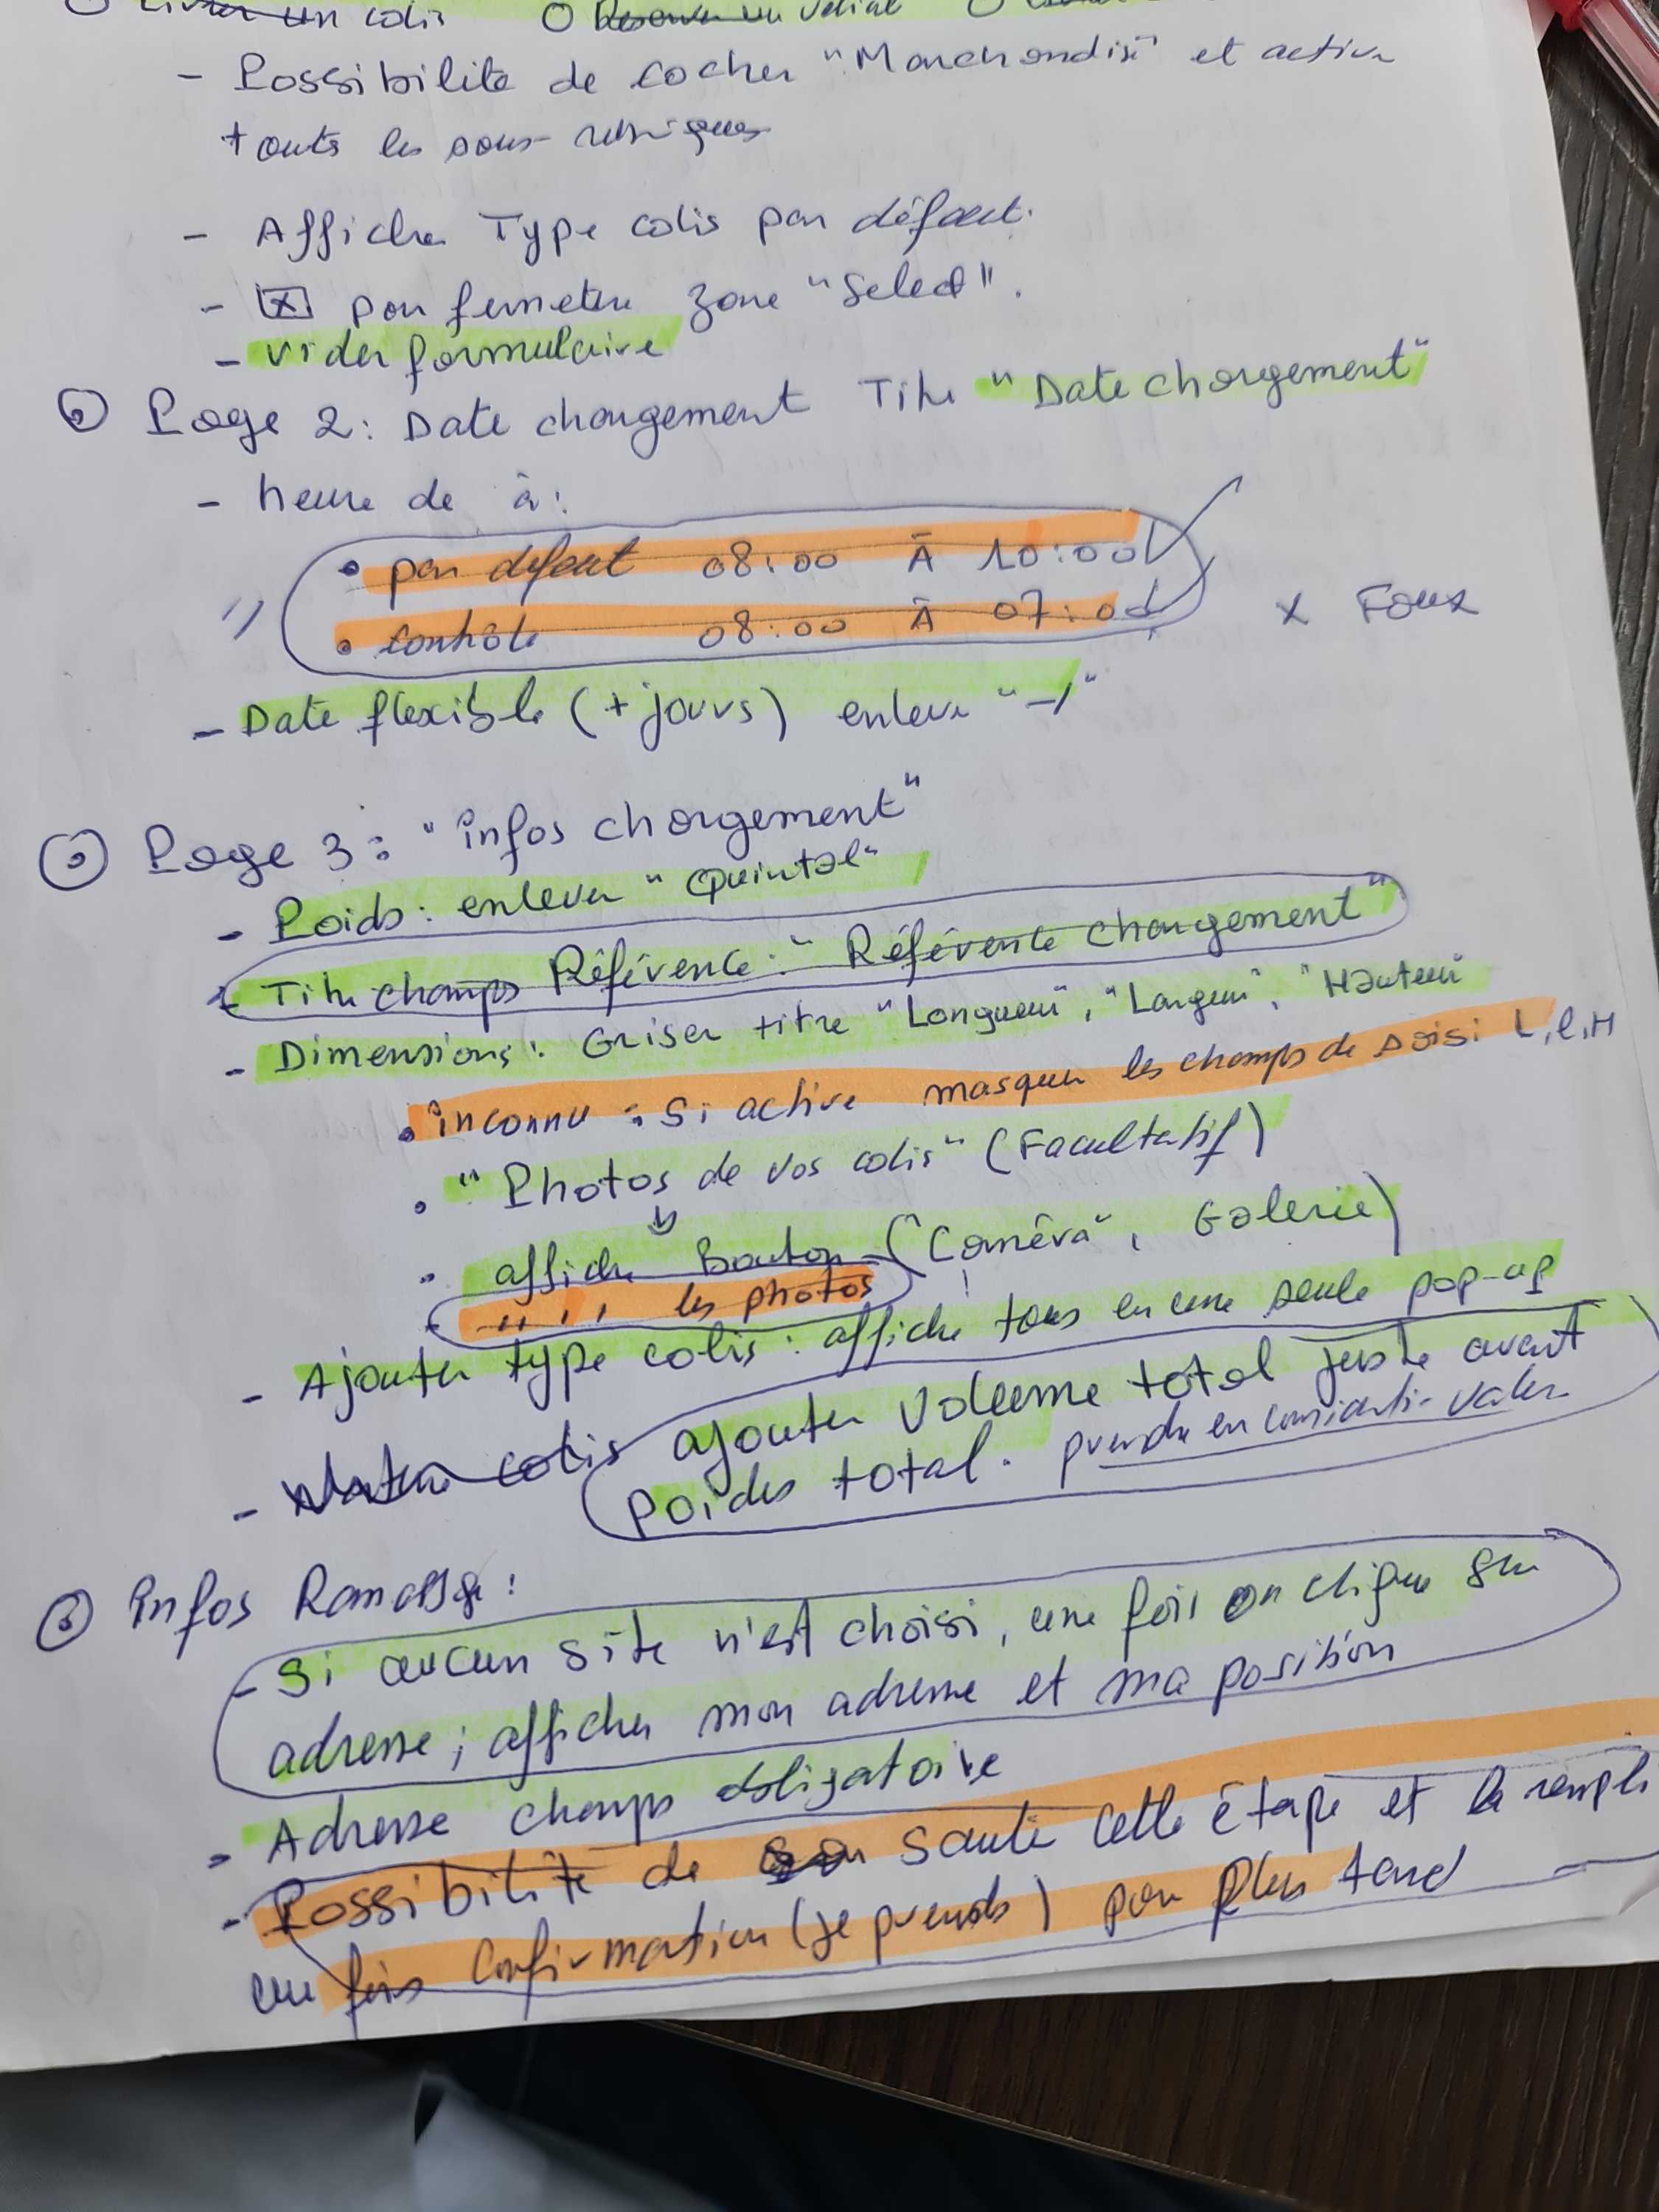 un colis O Réserver un
- Possibilité de cocher "Marchandise" et active
touts les sous-rubriques
- Affiche Type colis par défaut.
- [x] pour fermeture zone "Select".
- vider formulaire
Page 2: Date chargement Titre "Date chargement"
- heure de à:
• par defaut 08:00 À 10:00
• contrôle 08:00 À 07:00 x Faux
- Date flexible (+ jours) enlever "-/"
Page 3: "infos chargement"
- Poids: enlever "Quintal"
- Titre champs Référence: "Référence chargement"
- Dimensions: Griser titre "Longueur", "Largeur", "Hauteur"
• inconnu: Si active masquer les champs de saisi L,l,H
• "Photos de vos colis" (Facultatif)
• affiche Bouton ("Caméra", Galerie)
- " " les photos
- Ajouter type colis: affiche tous en une seule pop-up
- Nature colis ajouter volume total juste avant
Poids total. prendre en
infos Ramassage:
- Si aucun site n'est choisi, une fois on clique sur
adresse; afficher mon adresse et ma position
- Adresse champs obligatoire
- Possibilité de sauté cette étape et la rempli
une fois confirmation (je prends) pour plus tard